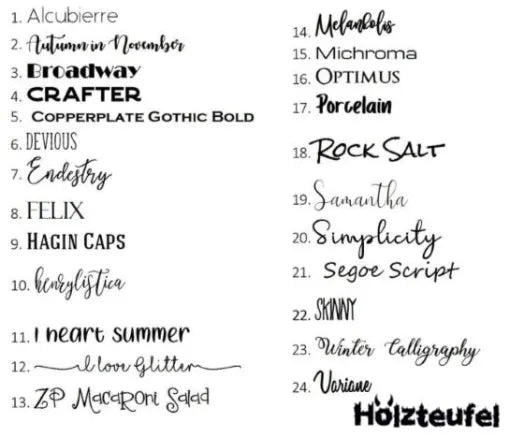 1. Alcubierre
2. Autumn in November
3. Broadway
4. CRAFTER
5. COPPERPLATE GOTHIC BOLD
6. DEVIOUS
7. Endestry
8. FELIX
9. HAGIN CAPS
10. henrylistica
11. I heart summer
12. I love Glitter
13. ZP Macaroni Salad
14. Melankolis
15. Michroma
16. OPTIMUS
17. Porcelain
18. ROCK SALT
19. Samantha
20. Simplicity
21. Segoe Script
22. SKINNY
23. Winter Calligraphy
24. Variane
Hölzteufel